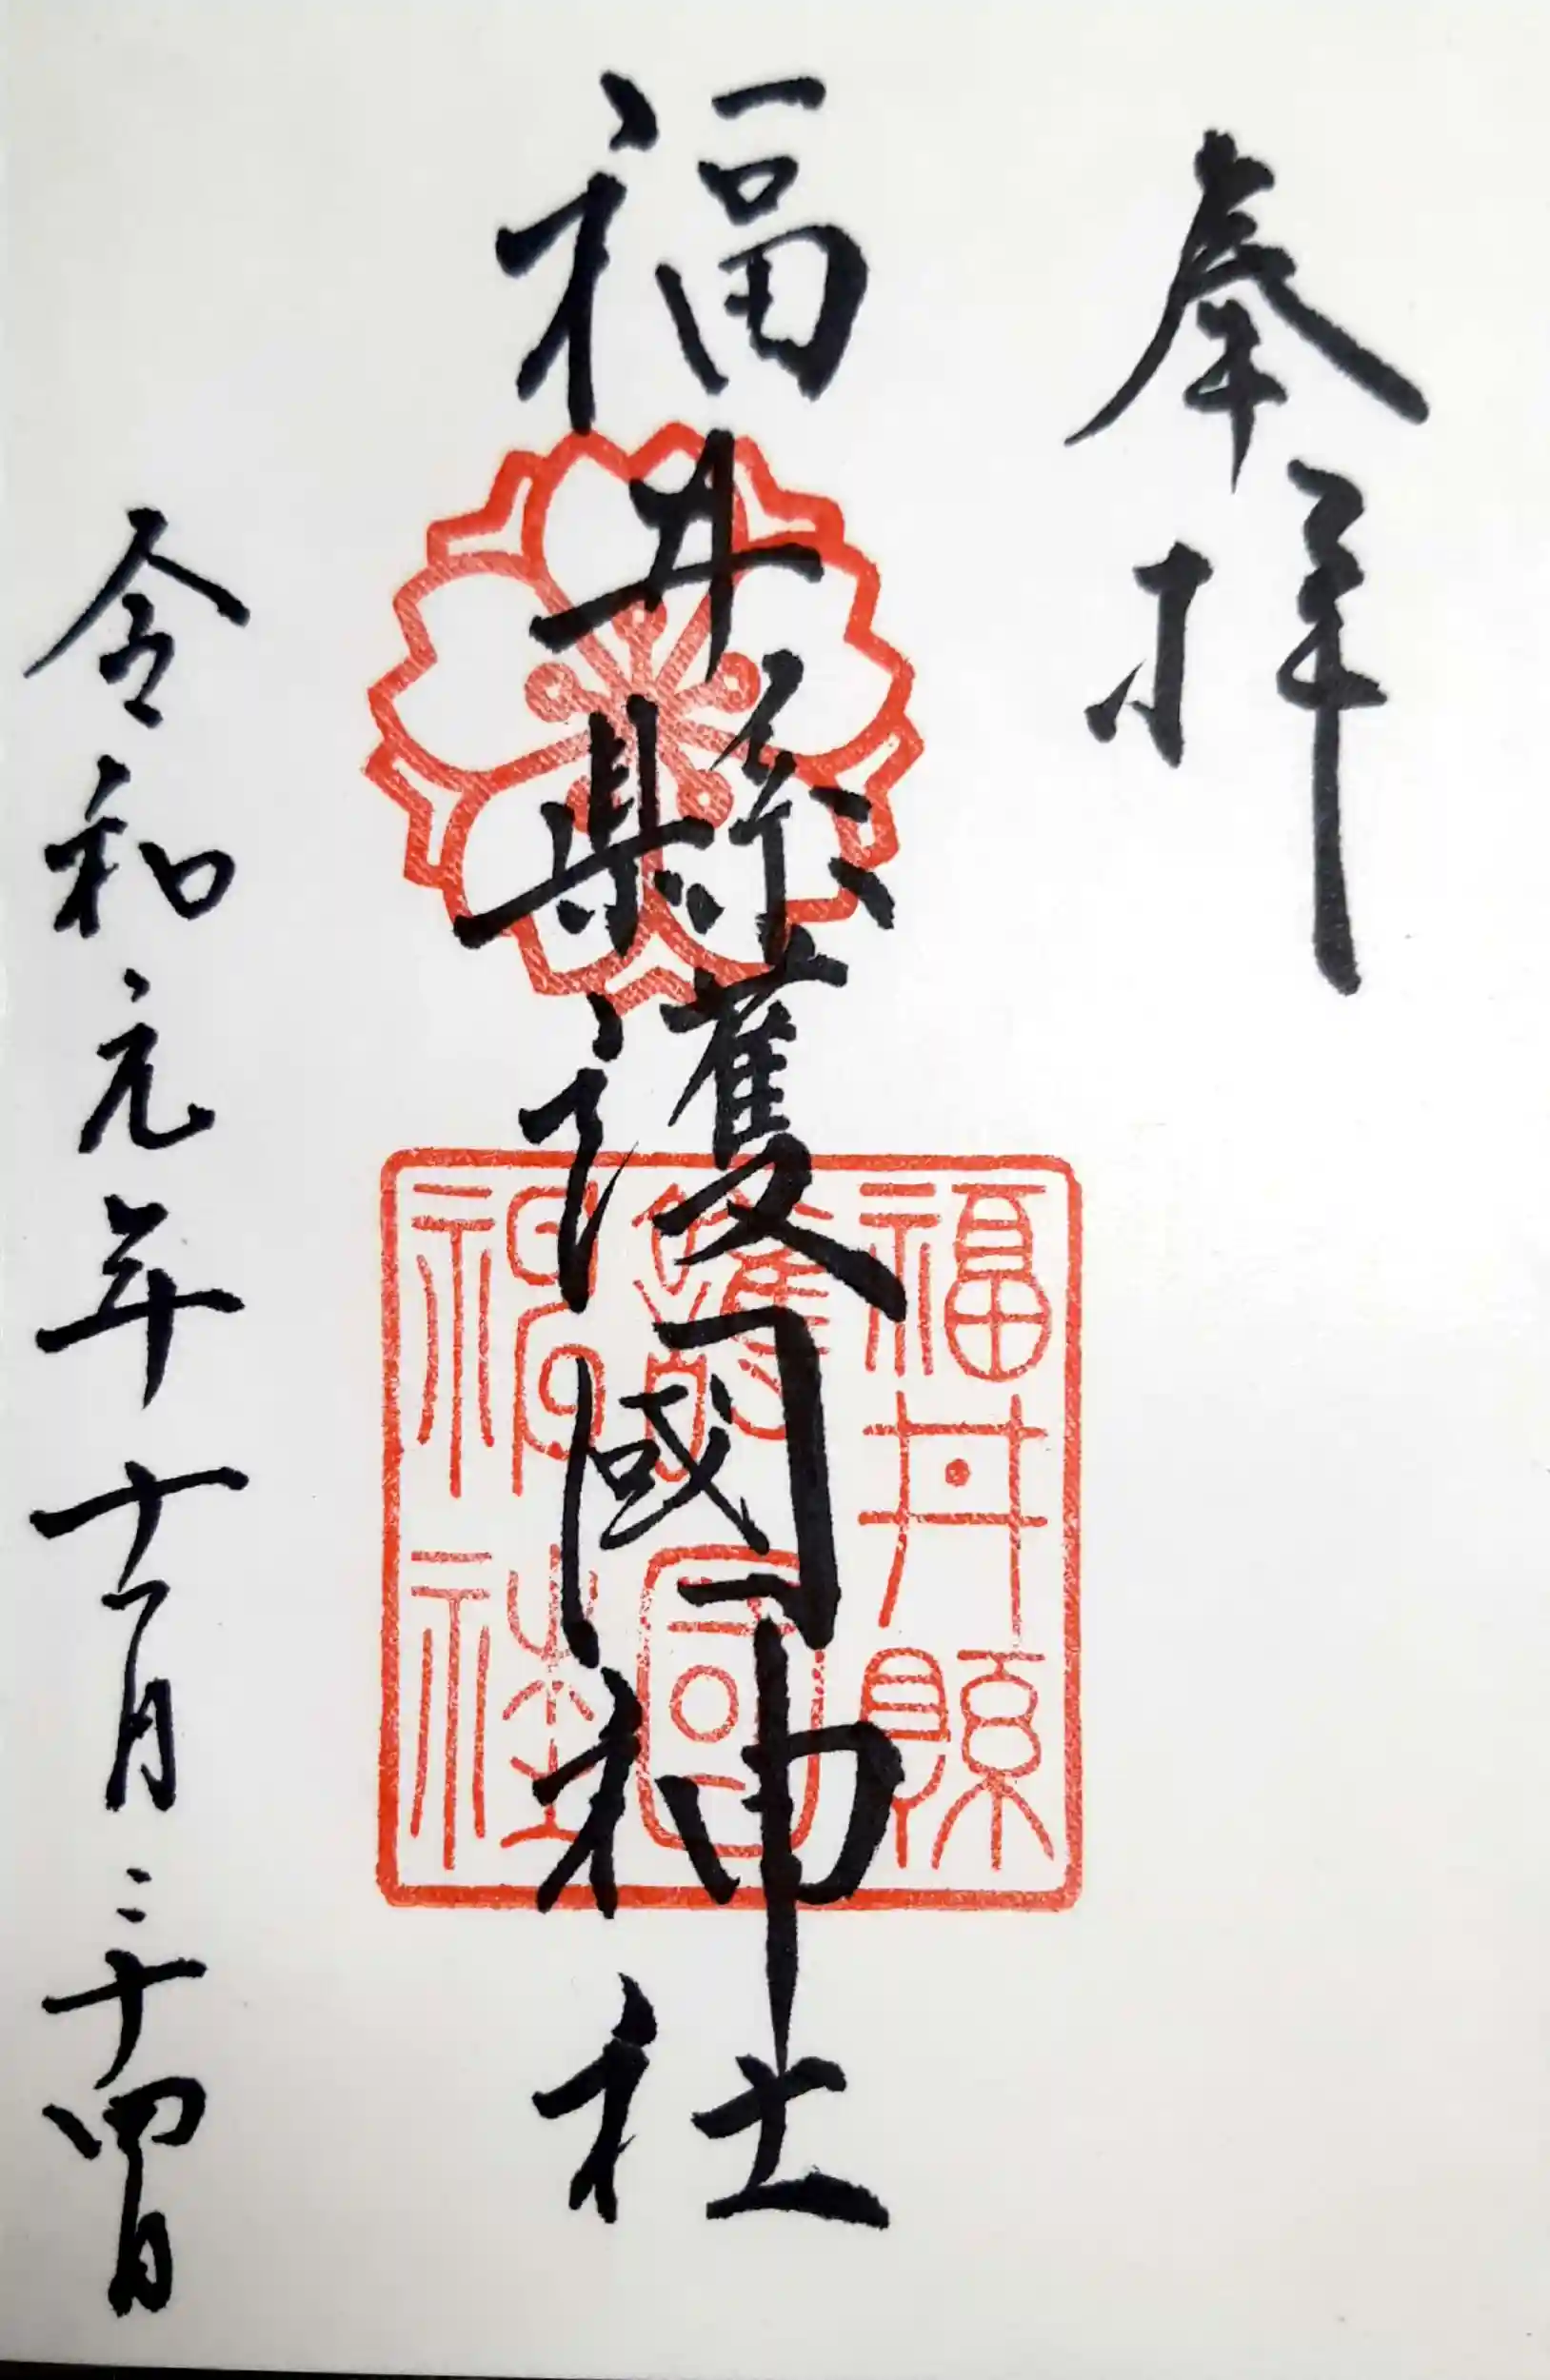 奉拝
福井縣護國神社
令和元年十一月二十四日
福井縣
護國
神社